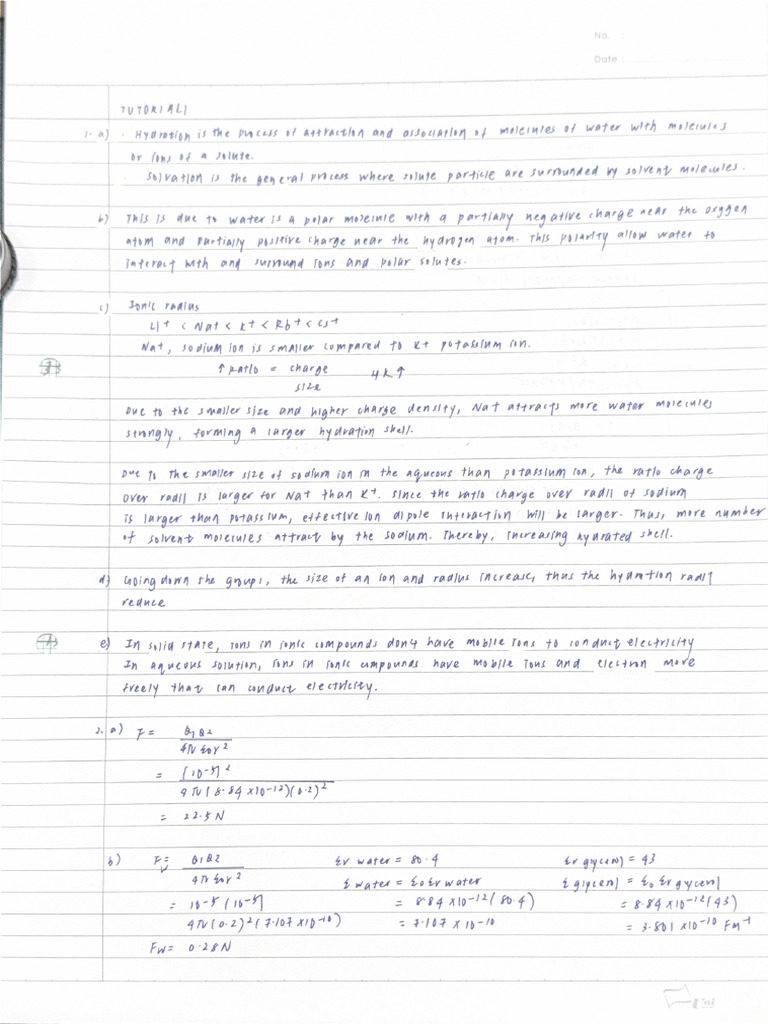 No. :
Date :
TUTORIAL 1
1. a) · Hydration is the process of attraction and association of molecules of water with molecules
or ions of a solute.
· Solvation is the general process where solute particle are surrounded by solvent molecules.
b) This is due to water is a polar molecule with a partially negative charge near the oxygen
atom and partially positive charge near the hydrogen atom. This polarity allow water to
interact with and surround ions and polar solutes.
c) Ionic radius
Li+ < Na+ < K+ < Rb+ < Cs+
Na+, sodium ion is smaller compared to K+ potassium ion.
↑ Ratio = charge
size
Due to the smaller size and higher charge density, Na+ attracts more water molecules
strongly, forming a larger hydration shell.
Due to the smaller size of sodium ion in the aqueous than potassium ion, the ratio charge
over radii is larger for Na+ than K+. Since the ratio charge over radii of sodium
is larger than potassium, effective ion dipole interaction will be larger. Thus, more number
of solvent molecules attract by the sodium. Thereby, increasing hydrated shell.
d) Going down the group 1, the size of an ion and radius increase, thus the hydration radii
reduce
e) In solid state, ions in ionic compounds don't have mobile ions to conduct electricity
In aqueous solution, ions in ionic compounds have mobile ions and electron more
freely that can conduct electricity.
2. a) F = Q1Q2
4π ε0r²
= (10⁻⁵)²
4π(8.84 x10-12)(0.2)²
= 22.5 N
b) Fw = Q1Q2 εr water = 80.4 εr glycerol = 43
4π ε0r² ε water = ε0 εr water ε glycerol = ε0 εr glycerol
= 10⁻⁵(10⁻⁵) = 8.84 x10-12(80.4) = 8.84 x10-12(43)
4π(0.2)²(7.107 x10-10) = 7.107 x 10-10 = 3.801 x10-10 Fm⁻¹
Fw = 0.28 N